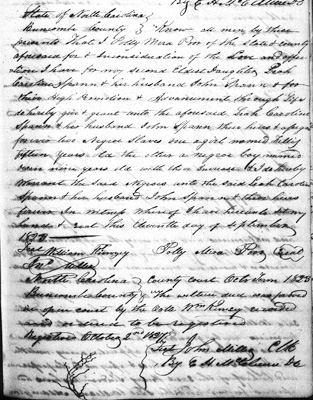 By E H McClure DC
State of North Carolina
Buncombe County } Know all men by these
presents That I Polly Mira Poor of the state & county
aforesaid for & Inconsideration of the Love and affec
tion I have for my second Eldest Daughter Leah
Caroline Spann & her husband John Spann & for
their High & Advancement through life
do hereby give & grant unto the aforesaid Leah Caroline
Spann & her husband John Spann there heirs & assigns
forever two Negroe Slaves one a girl named
fifteen years old the other a negroe boy named
nine years old with their Increase & I do hereby
Warrant the said negroes unto the said Leah Caroline
Spann & her husband John Spann & there heirs
forever In witness where of I have hereunto set my
hand & seal this Eleventh day of September
1827
Test William Kinzey Polly Mira Poor Seal
Miller
North Carolina } County court Octo Term 1827
Buncombe County } The within deed was proven
in open court by the oath Wm Kinzey
and ordered to be registered
Registered October 2nd 1827
Test John Miller Clk
By E H McClure DC